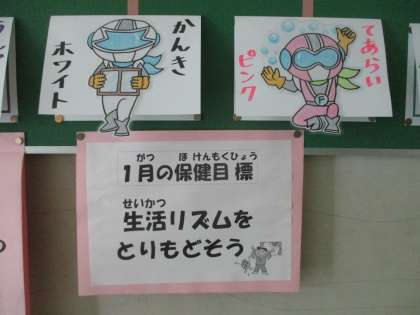 かんき
ホワイト
てあらい
ピンク
がつ ほけんもくひょう
1月の保健目標
せいかつ
生活リズムを
とりもどそう